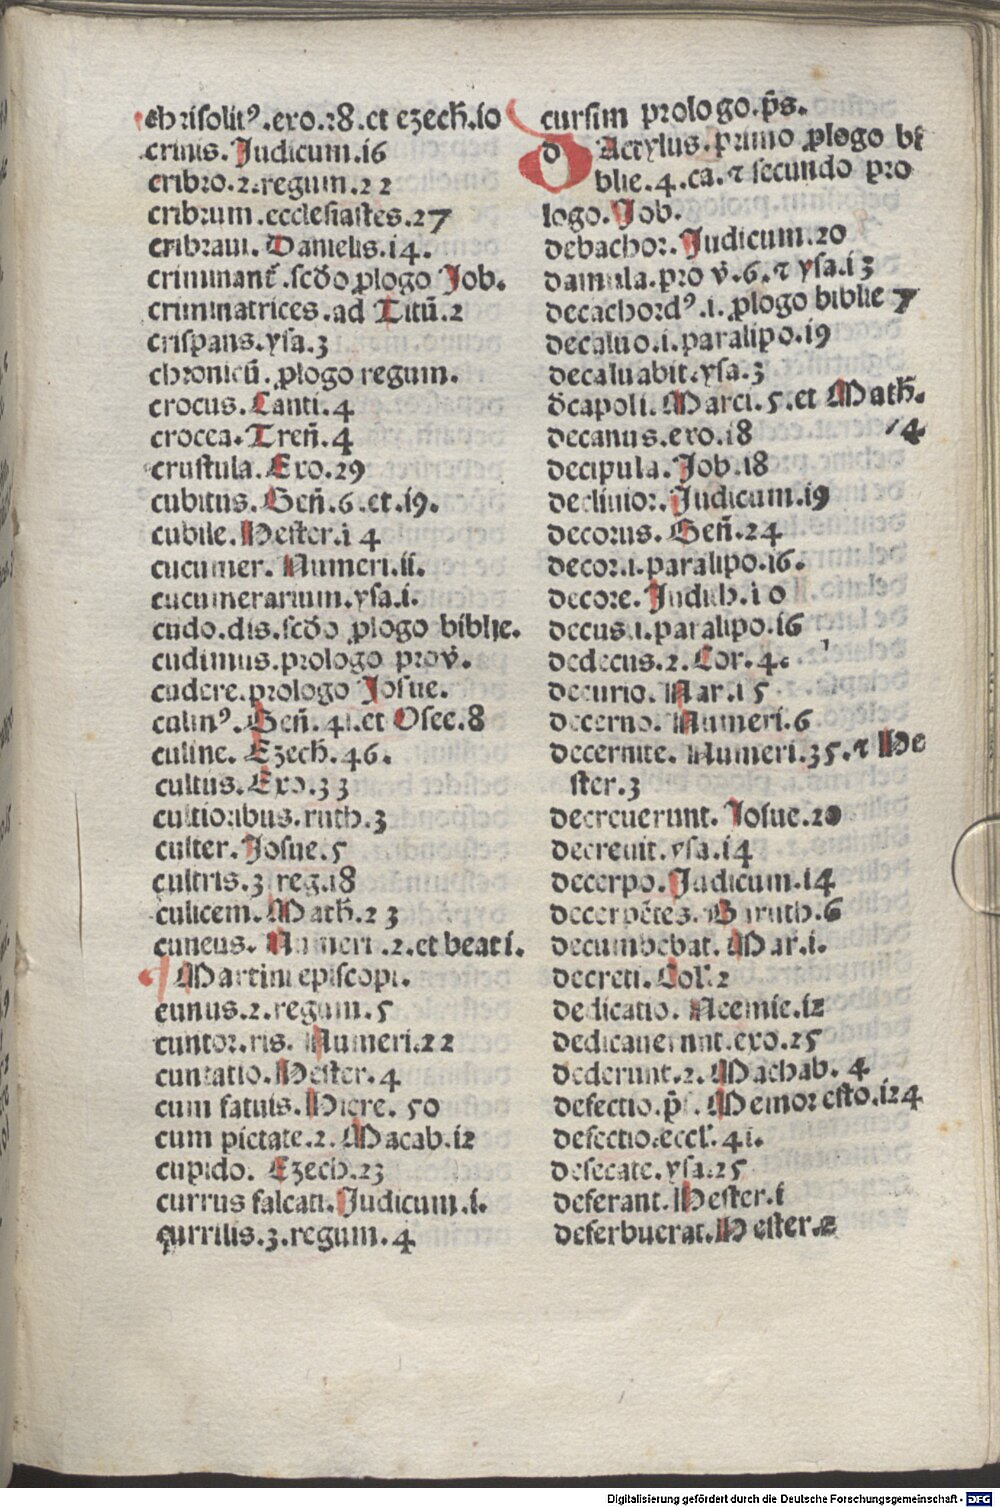 chrisolitꝰ.exo.28.et ezech̄.10
crinis.Judicum.16
cribro.2.regum.22
cribrum.ecclesiastes.27
cribraui.Danielis.14.
criminant᷑.scd̄o ꝓlogo Job.
criminatrices.ad Titū.2
crispans.ysa.3
chronicū.ꝓlogo regum.
crocus.Canti.4
crocea.Treñ.4
crustula.Exo.29
cubitus.Geñ.6.et.19.
cubile.Hester.14
cucumer.Numeri.ii.
cucumerarium.ysa.i.
cudo.dis.scd̄o ꝓlogo biblie.
cudimus.prologo prov̄.
cudere.prologo Josue.
culmꝰ.Geñ.41.et Osee.8
culine.Ezech̄.46.
cultus.Exo.33
cultioribus.ruth.3
culter.Josue.5
cultris.3.reg.18
culicem.Math̄.23
cuneus.Numeri.2.et beati.
Martini episcopi.
eunus.2.regum.5
cuntor.ris.Numeri.22
cunctatio.Hester.4
cum fatuis.Hiere.50
cum pietate.2.Macab.12
cupido.Ezech.23
currus falcati.Judicum.i.
currilis.3.regum.4
cursim prologo.p̄s.
DActylus.primo ꝓlogo bi
blie.4.ca.⁊ secundo pro
logo.Job.
debachor.Judicum.20
damula.pro v̄.6.⁊ ysa.13
decachordꝰ.i.ꝓlogo biblie 7
decaluo.i.paralipo.19
decaluabit.ysa.3
d̄capoli.Marci.5.et Math̄.
4
decanus.exo.18
decipula.Job.18
decliuior.Judicum.19
decorus.Geñ.24
decor.1.paralipo.16.
decore.Judith.10
decus.1.paralipo.16
dedecus.2.Cor.4.
decurio.Mar.15
decerno.Numeri.6
decernite.Numeri.35.⁊ He
ster.3
decreuerunt.Josue.20
decreuit.ysa.14
decerpo.Judicum.14
decerpētes.Baruth.6
decumbebat.Mar.i.
decreti.Col̄.2
dedicatio.Neemie.12
dedicauerunt.exo.25
dederunt.2.Machab.4
defectio.p̄s.Memor esto.124
defectio.eccl̄.41.
desecate.ysa.25
deferant.Hester.i
deferbuerat.Hester.2
Digitalisierung gefördert durch die Deutsche Forschungsgemeinschaft - DFG